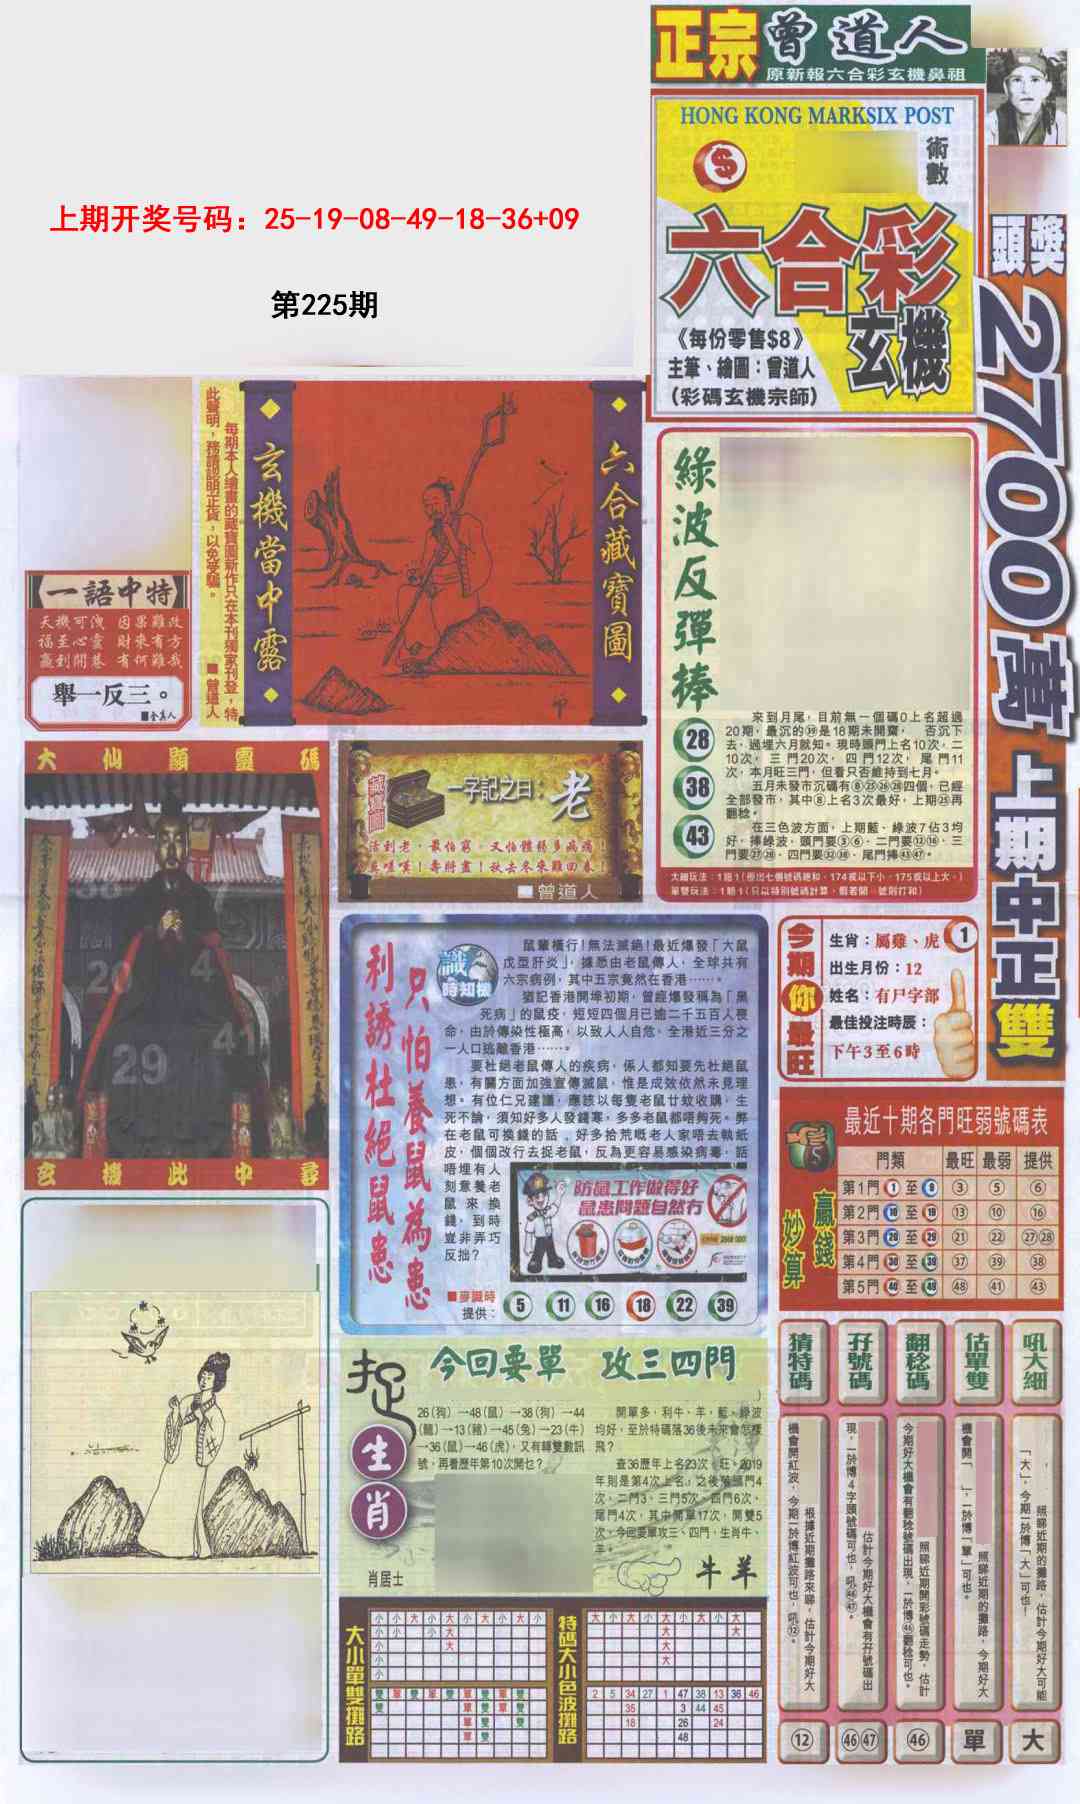 正宗曾道人
原新報六合彩玄機鼻祖
HONG KONG MARKSIX POST
術數
六合彩
玄機
《每份零售$8》
主筆、繪圖：曾道人
（彩碼玄機宗師）
頭獎2700萬
上期中正雙
上期开奖号码：25-19-08-49-18-36+09
第225期
每期本人繪畫的藏寶圖新作只在本刊獨家刊登，特
此聲明，務請認明正貨，以免受騙。
■曾道人
玄機當中露
六合藏寶圖
一語中特
天機可洩 因果難改
福至心靈 財來有方
贏到開巷 有何難我
舉一反三。
綠波反彈棒
28
38
43
來到月尾，目前無一個碼0上名超過
20期，最沉的㊴是18期未開齋， 否沉下
去，過埋六月就知。現時頭門上名10次，二
10次，三門20次，四門12次，尾門11
次，本月旺三門，但看只否維持到七月。
五月未發市沉碼有⑧㉕㉖㉘四個，已經
全部發市，其中⑧上名3次最好，上期㉕再
翻稔。
在三色波方面，上期藍、綠波7佔3均
好，捧綠波，頭門要③⑥，二門要⑫⑯，三
門要㉗㉘，四門要㉜㊳，尾門捧㊸㊼。
大細玩法：1賠1（攪出七個號碼總和，174或以下小，175或以上大。）
單雙玩法：1賠1（只以特別號碼計算，假若開 號則打和）
大仙顯靈碼
29
41
20
玄機此中尋
藏寶圖
一字記之曰：老
活到老，最怕窮，又怕體弱多病痛！
■曾道人
利誘杜絕鼠患
只怕養鼠為患
識時知機
鼠輩橫行！無法滅絕！最近爆發「大鼠
戊型肝炎」，據悉由老鼠傳人，全球共有
六宗病例，其中五宗竟然在香港……。
猶記香港開埠初期，曾經爆發稱為「黑
死病」的鼠疫，短短四個月已逾二千五百人喪
命，由於傳染性極高，以致人人自危，全港近三分之
一人口逃離香港……。
要杜絕老鼠傳人的疾病，係人都知要先杜絕鼠
患，有關方面加強宣傳滅鼠，惟是成效依然未見理
想。有位仁兄建議，應該以每隻老鼠廿蚊收購，生
死不論，須知好多人發錢寒，多多老鼠都唔夠死。弊
在老鼠可換錢的話，好多拾荒嘅老人家唔去執紙
皮，個個改行去捉老鼠，反為更容易感染病毒，話
唔埋有人
刻意養老
鼠來換
錢，到時
豈非弄巧
反拙？
防鼠工作做得好
鼠患問題自然冇
■麥識時
提供：
5 11 16 18 22 39
今期你最旺
1
生肖：屬雞、虎
出生月份：12
姓名：有尸字部
最佳投注時辰：
下午3至6時
最近十期各門旺弱號碼表
贏錢妙算
門類 最旺 最弱 提供
第1門 1至9 ③ ⑤ ⑥
第2門 10至19 ⑬ ⑩ ⑯
第3門 20至29 ㉑ ㉒ ㉗㉘
第4門 30至39 ㊲ ㊴ ㊳
第5門 40至49 ㊽ ㊶ ㊸
捉生肖
今回要單 攻三四門
26(狗)→48(鼠)→38(狗)→44
(龍)→13(豬)→45(兔)→23(牛)
→36(鼠)→46(虎)，又有轉雙數訊
號，再看歷年第10次開乜？
開單多，利牛、羊，藍、綠波
均好，至於特碼落36後未來會怎樣
飛？
查36歷年上名23次，旺。2019
年則是第4次上名，之後落頭門4
次，二門3，三門5次，四門6次，
尾門4次，其中開單17次，開雙5
次，今回要單攻三、四門，生肖牛、
羊。
肖居士
牛 羊
大小單雙攤路
小 小 大 小 大 小 小 大 大 小
小 小 小 大
小 大
小
小
雙 單 雙 單 雙 單 雙 單 雙
雙 單 雙 單 雙
單 雙 雙
單 雙
特碼大小色波攤路
大 小 大 小 大 小 小 大
大 大
大
大
2 5 34 27 1 47 38 13 36 46
35 3 44 45
18 26 24
48
猜特碼
根據近期攤路來睇，估計今期好大
機會開紅波，今期一於博紅波可也，吼⑫。
⑫
孖號碼
估計今期好大機會有孖號碼出
現，一於博4字頭號碼可也，吼㊻㊼。
㊻㊼
翻稔碼
照睇近期開彩號碼走勢，估計
今期好大機會有翻稔號碼出現，一於博㊻翻稔可也。
㊻
估單雙
照睇近期的攤路，今期好大
機會開「 」，一於博「單」可也。
單
吼大細
照睇近期的攤路，估計今期好大可能
「大」，今期一於博「大」可也！
大